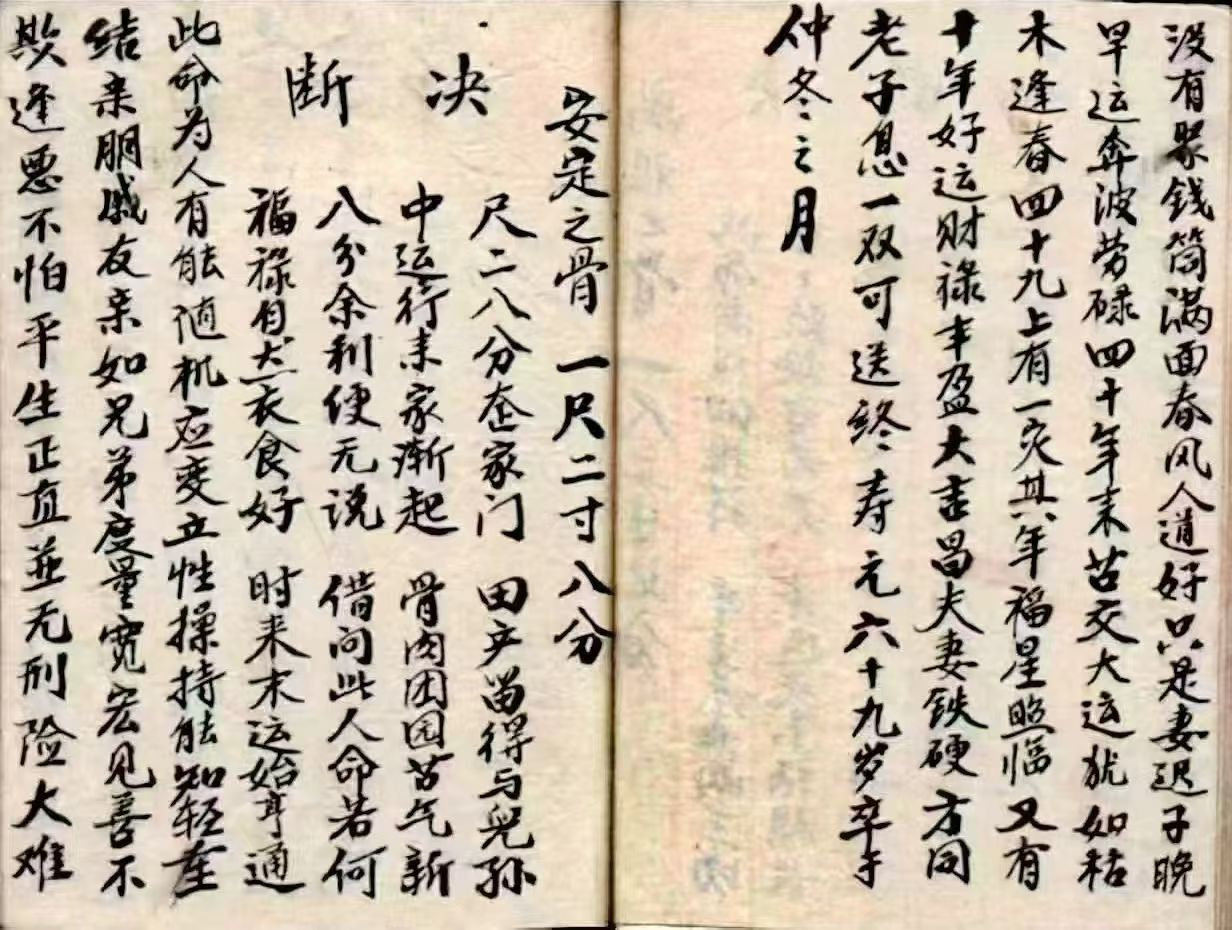 没有聚钱筒满面春风人道好只是妻迟子晚
早运奔波劳碌四十年来苦交大运犹如枯
木逢春四十九上有一灾其年福星照临又有
十年好运财禄丰盈大吉昌夫妻铁硬方同
老子息一双可送终寿元六十九岁卒于
仲冬之月
安定之骨 一尺二寸八分
决断
尺二八分家门 田产留得与儿孙
中运行来家渐起 骨肉团园苦气新
八分余利便无说 借问此人命若何
福禄自然衣食好 时来末运始亨通
此命为人有能随机应变立性操持能知轻重
结亲朋戚友亲如兄弟度量宽宏见善不
欺逢恶不怕平生正直並无刑险大难